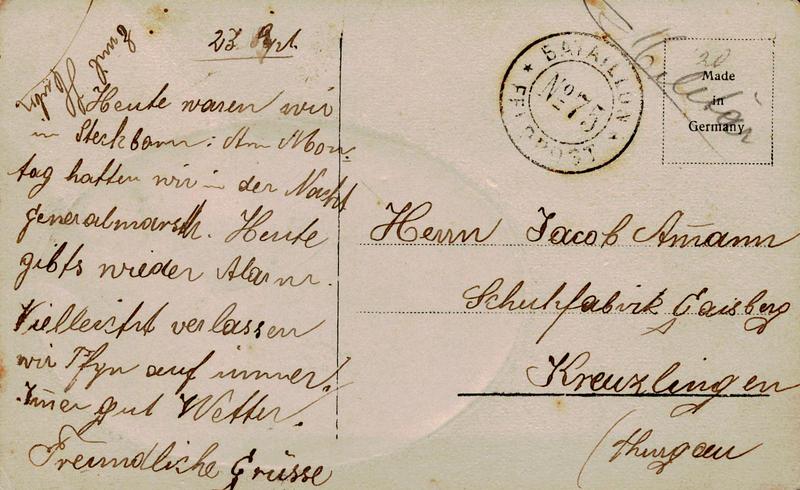 23 Sept.
Heute waren wir
in Steckborn: Am Mon-
tag hatten wir in der Nacht
generalmarsch. Heute
gibts wieder Alarm.
Vielleicht verlassen
wir Pfyn auf immer!
Im̄er gut Wetter.
Freundliche Grüsse
BATAILLON
No 75
FELDPOST
Militär
Made
in
Germany
Herrn Jacob Am̄ann
Schuhfabrik Gaisberg
Kreuzlingen
(Thurgau